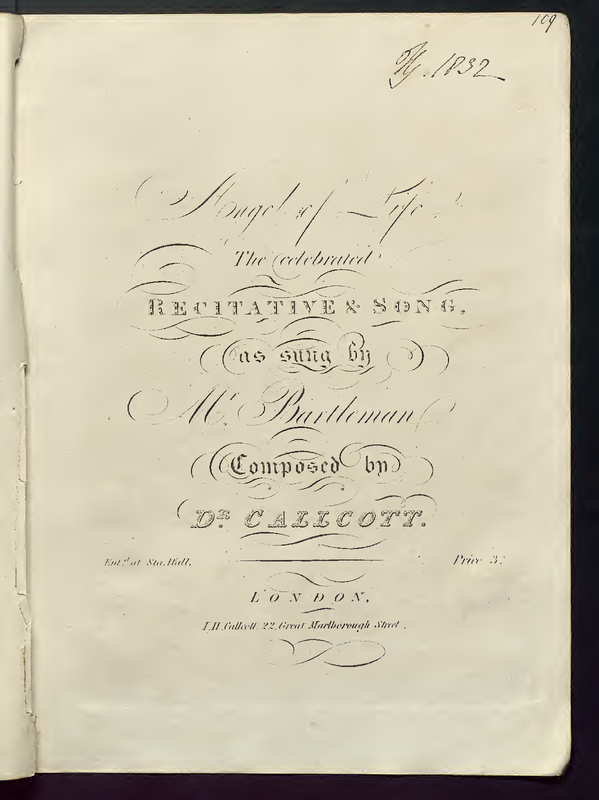 109
1832
Angel of Life
The celebrated
RECITATIVE & SONG,
as sung by
Mr. Bartleman
Composed by
DR. CALLCOTT.
Entd. at Sta. Hall.
Price 3s.
LONDON,
I.H. Callcott, 22, Great Marlborough Street.